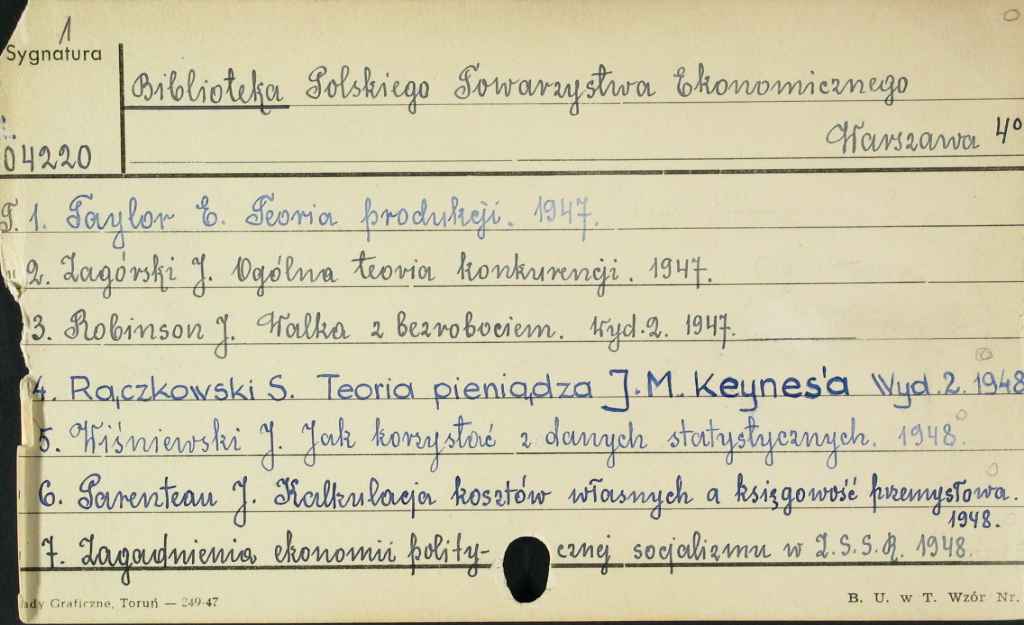 1
Sygnatura
Biblioteka Polskiego Towarzystwa Ekonomicznego
Warszawa 4º
04220
T. 1. Taylor E. Teoria produkcji. 1947.
" 2. Zagórski J. Ogólna teoria konkurencji. 1947.
3. Robinson J. Walka z bezrobociem. Wyd. 2. 1947.
4. Rączkowski S. Teoria pieniądza J. M. Keynes'a Wyd. 2. 1948
5. Wiśniewski J. Jak korzystać z danych statystycznych. 1948.
6. Parenteau J. Kalkulacja kosztów własnych a księgowość przemysłowa.
1948.
7. Zagadnienia ekonomii polity- cznej socjalizmu w Z.S.S.R. 1948.
ady Graficzne, Toruń — 249-47
B. U. w T. Wzór Nr.